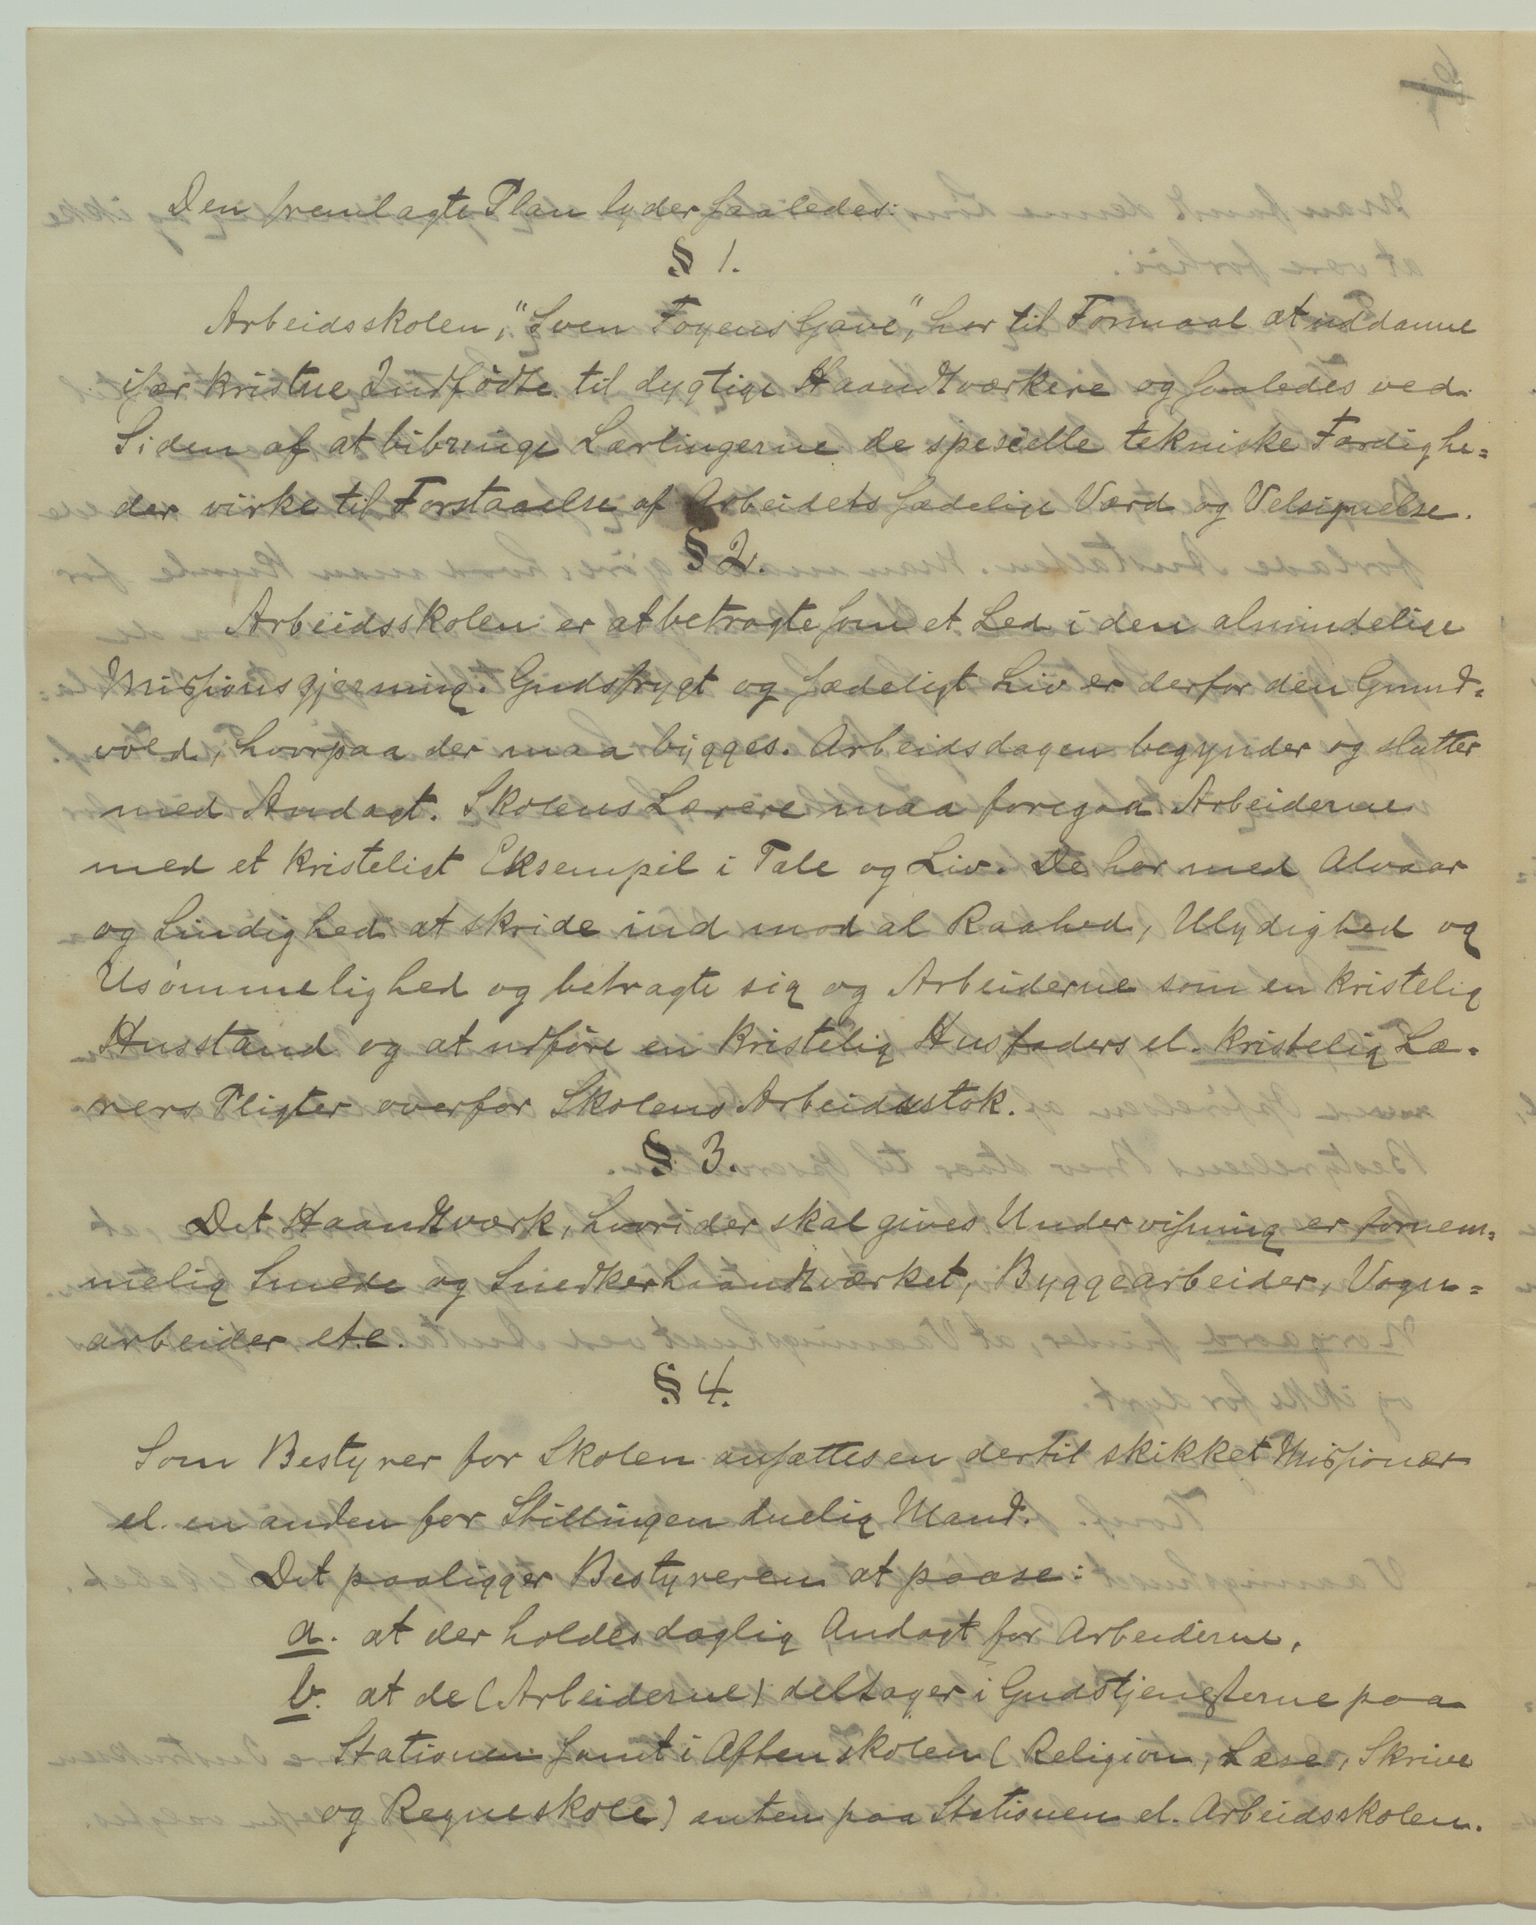 Den fremlagte Plan lyder saaledes:
§ 1.
Arbeidsskolen, "Sven Foyens Gave", har til Formaal at uddanne
især kristne Indfødte til dygtige Haandtværkere og saaledes ved
Siden af at bibringe Lærlingerne de specielle tekniske Færdighe=
der virke til Forstaaelse af Arbeidets sædelige Værd og Velsignelse.
§ 2.
Arbeidsskolen er at betragte som et Led i den almindelige
Missionsgjerning. Gudsfrygt og sædeligt Liv er derfor den Grund=
vold, hvorpaa der maa bygges. Arbeidsdagen begynder og slutter
med Andagt. Skolens Lærere maa foregaa Arbeiderne
med et kristeligt Eksempel i Tale og Liv. De har med Alvaar
og Lindighed at skride ind mod al Raahed, Ulydighed og
Usømmelighed og betragte sig og Arbeiderne som en kristelig
Husstand og at udføre en kristelig Husfaders el. kristelig Læ=
rers Pligter overfor Skolens Arbeidsstok.
§ 3.
Det Haandtværk, hvori der skal gives Undervisning er fornem=
melig Smede og Snedkerhaandtværket, Byggearbeider, Vogn=
arbeider etc.
§ 4.
Som Bestyrer for Skolen ansættes en dertil skikket Missionær
el. en anden for Stillingen duelig Mand.
Det paaligger Bestyreren at paase:
a. at der holdes daglig Andagt for Arbeiderne,
b. at de (Arbeiderne) deltager i Gudstjenesterne paa
Stationen samt i Aftenskolen (Religion, Læse, Skrive
og Regneskole) enten paa Stationen el. Arbeidsskolen.